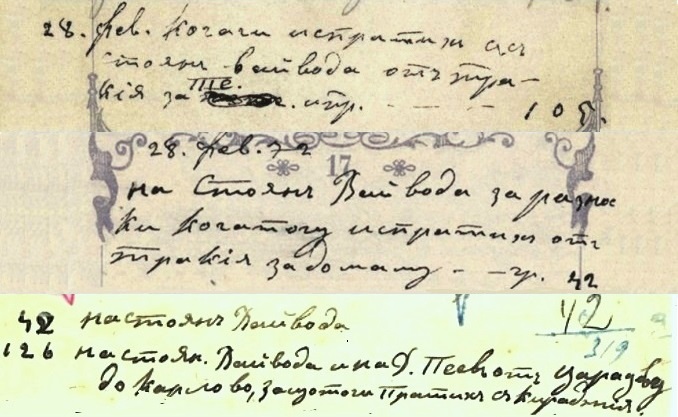 28. фев. Когаги испратих със
стоянъ вайвода отъ тра-
кія за Тѣе. . . гр. - - - 105.
28. фев. 72
17
на Стоянъ Вайвода за разнос
ки когатогу испратих отъ
тракія за домаму - - гр. 42
42 на стоянъ Вайвода
42
319
126 на стоян. Вайвода и на Д. Пеевотъ Цариград
до Карлово, защотоги пратих съ